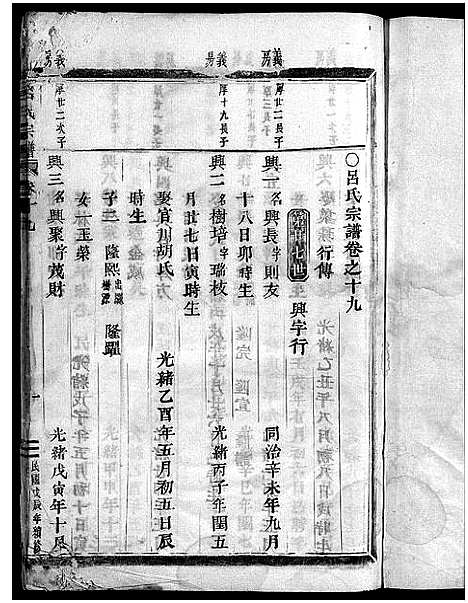 ○呂氏宗譜卷之十九
行傳
第廿七世
興字行
義房
厚廿二長子
興一名興長字則友
同治辛未年九月
十八日卯時生
厚十九長子
興二名樹培字瑞枝
光緒丙子年閏五
月廿七日寅時生
娶官川胡氏方
光緒乙酉年五月初五日辰
時生
子二
隆熙
隆躍
女一玉榮
義房
厚廿二次子
興三名興聚行茂財
光緒戊寅年十月
呂氏宗譜
民國戊辰年續修